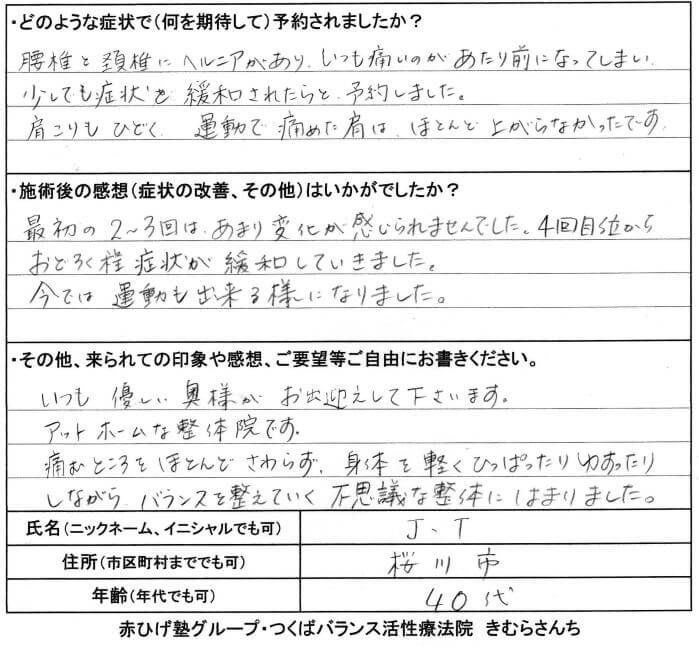 ・どのような症状で(何を期待して)予約されましたか？
腰椎と頚椎にヘルニアがあり、いつも痛いのがあたり前になってしまい、
少しでも症状を緩和されたらと、予約しました。
肩こりもひどく、運動で痛めた肩は、ほとんど上がらなかったです。
・施術後の感想(症状の改善、その他)はいかがでしたか？
最初の2～3回は、あまり変化が感じられませんでした。4回目位から
おどろく程症状が緩和していきました。
今では運動も出来る様になりました。
・その他、来られての印象や感想、ご要望等ご自由にお書きください。
いつも優しい奥様がお出迎えして下さいます。
アットホームな整体院です。
痛むところをほとんどさわらず、身体を軽くひっぱったりゆすったり
しながら、バランスを整えていく不思議な整体にはまりました。
氏名(ニックネーム、イニシャルでも可) J、T
住所(市区町村まででも可) 桜川市
年齢(年代でも可) 40代
赤ひげ塾グループ・つくばバランス活性療法院 きむらさんち